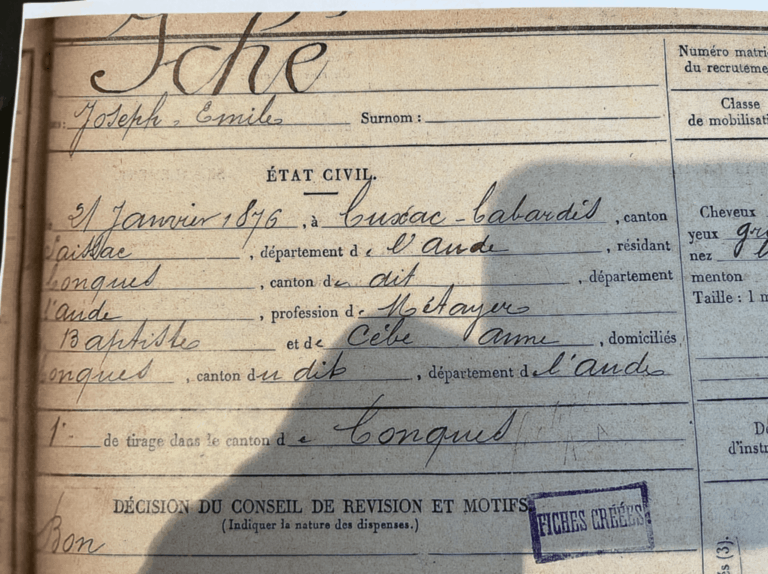 Iché
Numéro matri
du recruteme
Joseph, Emile Surnom :
Classe
de mobilisati
ÉTAT CIVIL.
21 Janvier 1876, à Cuxac-Cabardès, canton
Saissac, département de l'Aude, résidant
Conques, canton du dit, département
l'Aude, profession de Métayer
Baptiste et de Cèbe Anne, domiciliés
Conques, canton du dit, département de l'Aude
Cheveux
yeux gr
nez
menton
Taille : 1 m
1 de tirage dans le canton de Conques
D
d'inst
DÉCISION DU CONSEIL DE REVISION ET MOTIFS
(Indiquer la nature des dispenses.)
FICHES CRÉÉES
Bon
és (3).